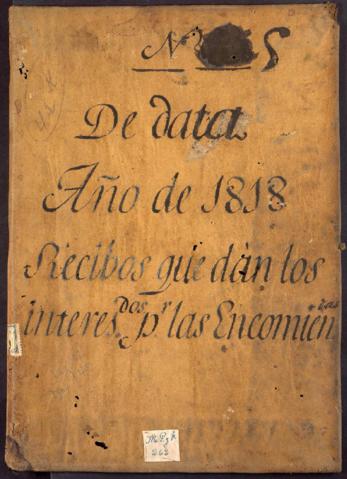 N 5
De data
Año de 1818
Recibos que dán los
interesdos pr las Encomiendas
263